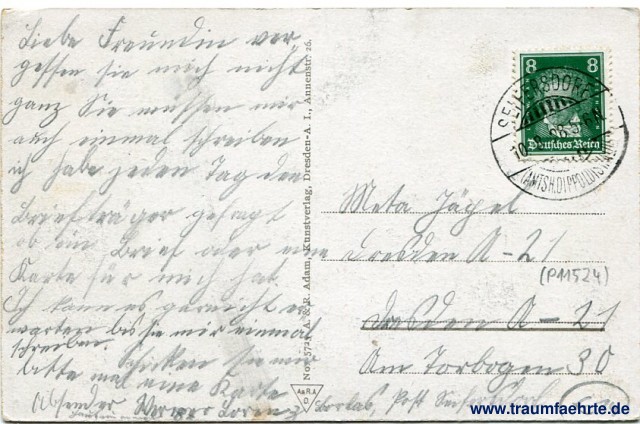 Liebe Freundin ver
gessen sie mich nicht
ganz Sie müssen mir
auch einmal schreiben
ich habe jeden Tag den
Briefträger gefragt
ob ein Brief oder eine
Karte für mich hat.
Ich kann es gar nicht er
warten bis sie mir einmal
schreiben. schicken Sie mir
bitte mal eine Karte
Absender Werner Lorenz
No. 573 A. & R. Adam, Kunstverlag, Dresden-A. I., Annenstr. 26.
A&RA
D.
8 8
Deutsches Reich
(AMTSH. DIPPOLDISWALDE)
Meta Jägel
Dresden A-21
(P11524)
Dresden A-21
Am Torbogen 30
Post
www.traumfaehrte.de